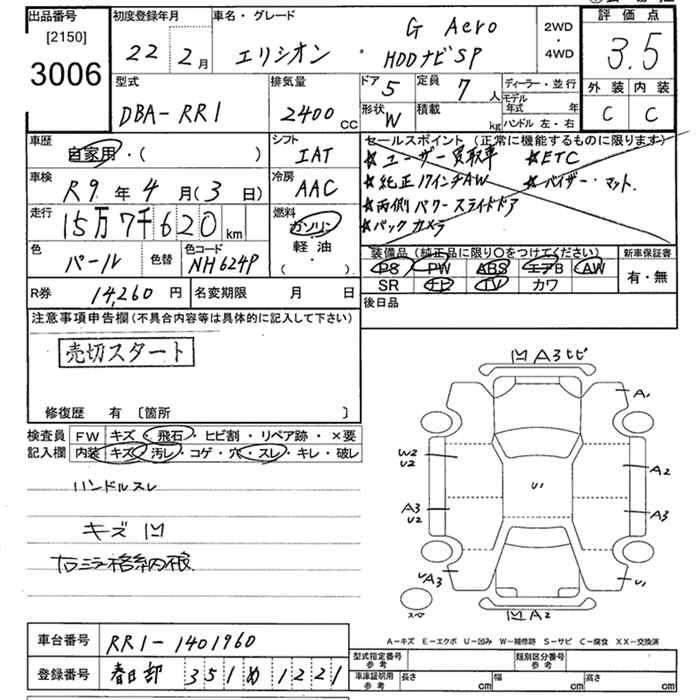 出品番号
[2150]
3006
初度登録年月
22 2月
車名・グレード
G Aero
エリシオン・HDDナビSP
2WD
・
4WD
評価点
3.5
外装 内装
C C
型式
DBA-RR1
排気量
2400cc
ドア 5
定員 7人
形状 W
積載 kg
ディーラー・並行
モデル年式 年
ハンドル 左・右
車歴
自家用・( )
シフト
IAT
セールスポイント(正常に機能するものに限ります)
☆ユーザー買取車 ☆ETC
☆純正17インチAW ☆バイザー・マット
☆両側パワースライドドア
☆バックカメラ
車検
R9年4月(3日)
冷房
AAC
走行
15万7千620km
燃料
ガソリン
軽油
( )
色
パール
色替
色コード
NH624P
装備品(純正品に限り○をつけてください)
PS PW ABS エアB AW
SR ナビ TV カワ
新車保証書
有・無
R券 14,260円
名変期限 月 日
後日品
注意事項申告欄(不具合内容等は具体的に記入して下さい)
売切スタート
修復歴 有〔箇所 〕
検査員記入欄
FW キズ・飛石・ヒビ割・リペア跡・×要
内装 キズ・汚レ・コゲ・穴・スレ・キレ・破レ
ハンドルスレ
キズ凹
右ミラー格納不良
凹A3ヒビ
A1
W2
U2
U1
A2
A3
U2
A3
UA3
U1
スペア
凹A2
A-キズ E-エクボ U-凹み W-補修跡 S-サビ C-腐食 XX-交換済
車台番号 RR1-1401960
登録番号 春日部 351 め 1221
型式指定番号 参考
類別区分番号 参考
車庫証明用 参考
長さ cm 幅 cm 高さ cm